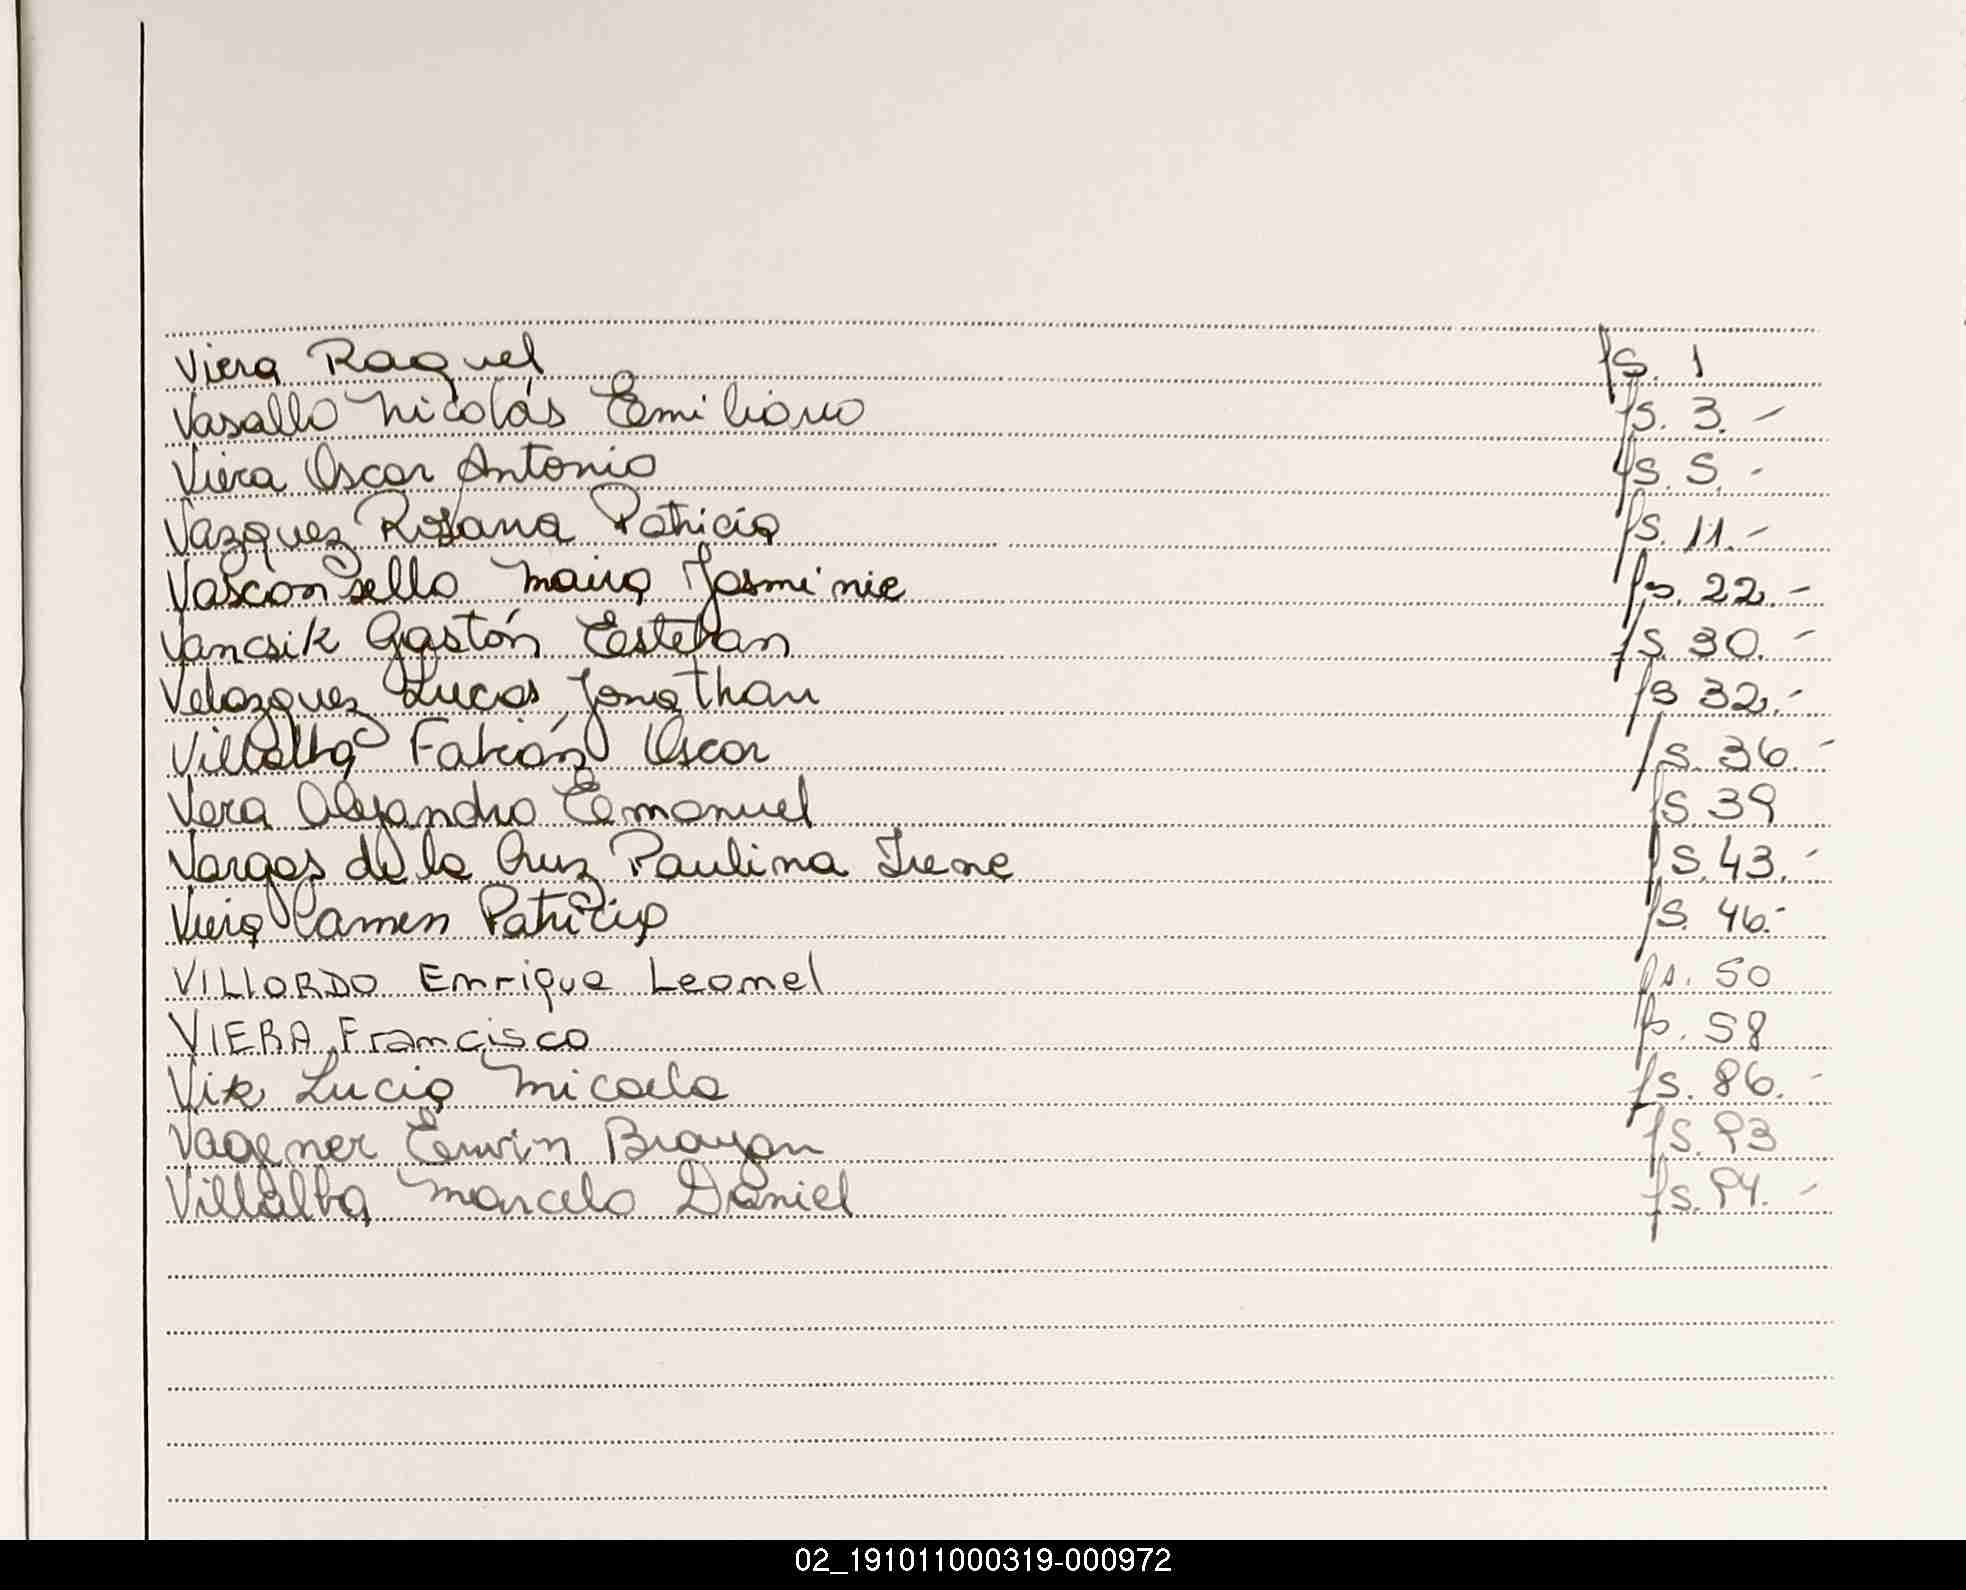 Viera Raquel fs. 1
Vasallo Nicolás Emiliano fs. 3.-
Viera Oscar Antonio fs. 5.-
Vazquez Rosana Patricia fs. 11.-
Vasconsello Maira Jasminie fs. 22.-
Vancsik Gastón Esteban fs. 30.-
Velazquez Lucas Jonathan fs 32.-
Villalba Fabián Oscar fs. 36.-
Vera Alejandro Emanuel fs 39
Vargas de la Cruz Paulina Irene fs. 43.-
Viera Carmen Patricia fs. 46.-
VILLORDO Enrique Leonel fs. 50
VIERA Francisco fs. 58
Vik Lucia Micaela fs. 86.-
Vagener Erwin Brayan fs. 93
Villalba Marcelo Daniel fs. 94.-
02_191011000319-000972